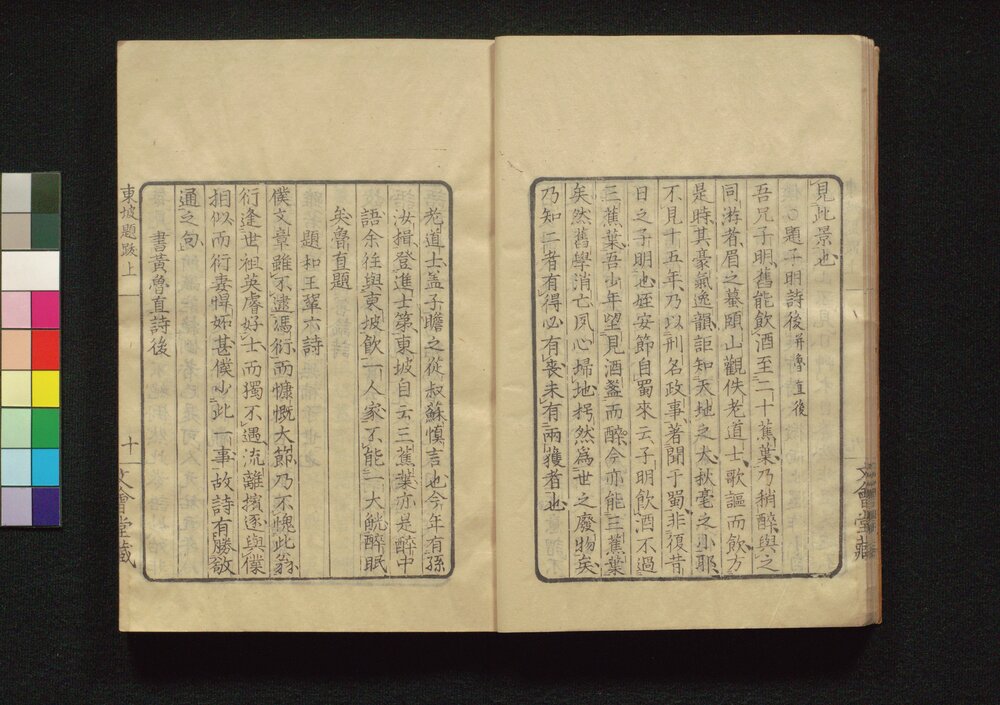 見此景也
○題子明詩後 幷魯直後
吾兄子明舊能飲酒至二十蕉葉乃稍醉與之
同游者眉之蟇頤山觀佚老道士歌謳而飲方
是時其豪氣逸韻詎知天地之大秋毫之小耶
不見十五年乃以刑名政事著聞于蜀非復昔
日之子明也姪安節自蜀來云子明飲酒不過
三蕉葉吾少年望見酒盞而醉今亦能三蕉葉
矣然舊學消亡夙心掃地枵然為世之廢物矣
乃知二者有得必有喪未有兩獲者也
老道士蓋子瞻之從叔蘇慎言也今年有孫
汝楫登進士第東坡自云三蕉葉亦是醉中
語余往與東坡飲一人家不能一大觥醉眠
矣魯直題
題和王鞏六詩
僕文章雖不逮馮衍而慷慨大節乃不愧此翁
衍逢世祖英睿好士而獨不遇流離擯逐與僕
相似而衍妻悍妬甚僕少此一事故詩有勝敬
通之句
書黃魯直詩後
東坡題跋上
十
文會堂藏
文會堂藏